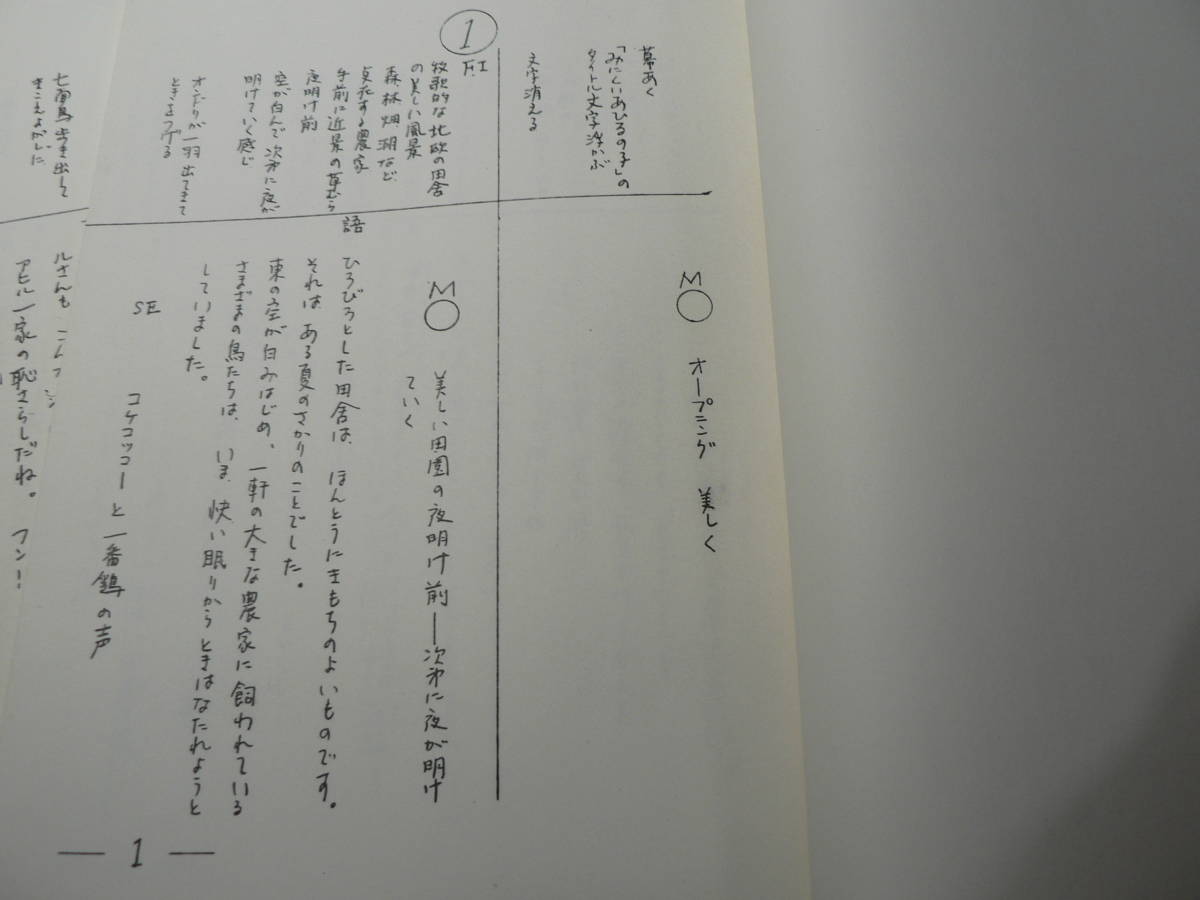 幕あく
「みにくいあひるの子」の
タイトル文字浮かぶ
文字消える
M
オープニング 美しく
1
F.I
牧歌的な北欧の田舎
の美しい風景
森、林、畑、湖など
点在する農家
手前に近景の草むら
夜明け前
空が白んで次第に夜が
明けていく感じ
オンドリが一羽出てきて
ときをつげる
M
美しい田園の夜明け前—次第に夜が明け
ていく
語
ひろびろとした田舎は、ほんとうにきもちのよいものです。
それは、ある夏のさかりのことでした。
東の空が白みはじめ、一軒の大きな農家に飼われている
さまざまの鳥たちは、いま、快い眠りからときはなたれようと
していました。
SE
コケコッコーと一番鶏の声
— 1 —
七面鳥歩き出して
きこえよがしに
ルさんも
アヒル一家の恥さらしだね。フン!